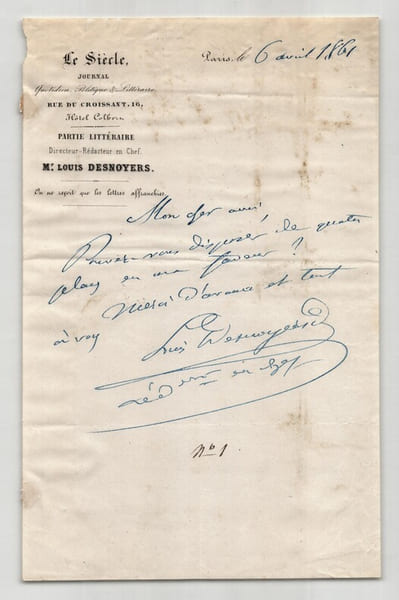 Le Siècle,
Paris, le 6 avril 1861
JOURNAL
Quotidien, Politique & Littéraire,
RUE DU CROISSANT, 16,
Hôtel Colbert.
PARTIE LITTÉRAIRE
Directeur-Rédacteur en Chef.
Mr. LOUIS DESNOYERS.
On ne reçoit que les lettres affranchies.
Mon cher ami
Pouvez-vous disposer de quatre
places en ma faveur ?
Merci d'avance et tout
à vous
Louis Desnoyers
Réd eur en chef
No 1